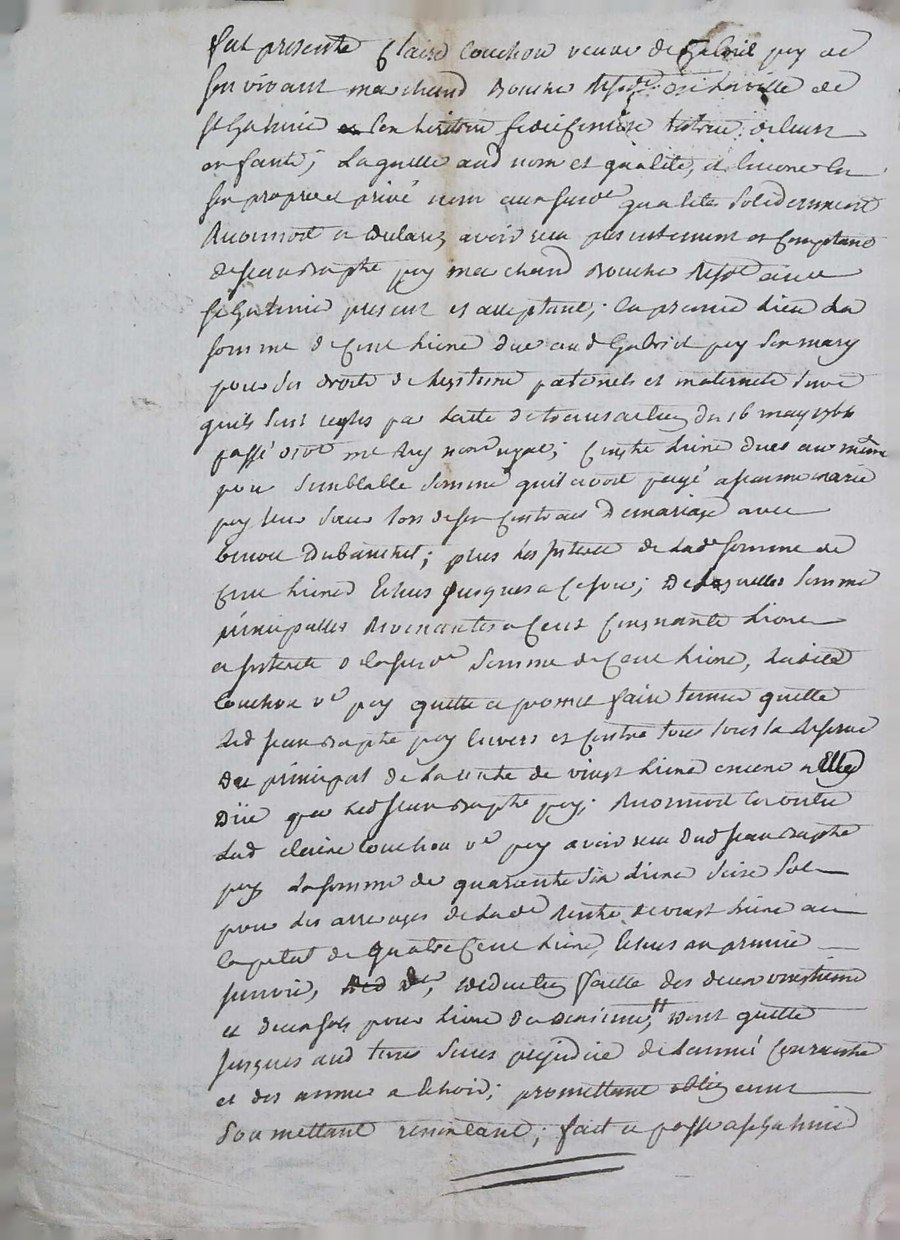 fut presente Claire Couchou veuve de Gabriel pey de
son vivant marchand Boucher Resid.t en la ville de
St Galmier son heritiere fideicommise de leurs
enfants; Laquelle aud nom et qualité, et encore en
son propre et privé nom aux susd.es qualités Solidairement
Reconnoit et declare avoir recu presentement et Comptant
de Jean Baptte pey marchand Boucher Resid.t aud
St Galmier present et acceptant; en premier Lieu La
somme de Cent Livres due aud Gabriel pey Son mary
pour Ses droits de legitime paternels et maternels
quils Sont reglés par Lacte de transaction du 16 may
passé devt me Rey nore royal; Cinqte Livres dues au même
pour Semblable Somme quil avoit payé a jeanne marie
pey leur Soeur lors de son Contract De mariage avec
Benoit Dubanchet; plus Les Interets de Lade Somme de
Cent Livres Echus Jusques a Ce jour; Desquelles Sommes
principalles Revenantes a Cent Cinquante Livres
et Interets de la susde Somme de Cent Livres, Ladite
Couchou ve pey quitte et promet faire tenir quitte
Led Jean Bapte pey Envers et Contre tous Sous la reserve
Du principal de La rente de vingt Livres encore a Elle
Due par Led Jean Bapte pey; Reconnoit En outre
Lad Claire Couchou ve pey avoir recu Dud Jean Bapte
pey La somme de quarante Six Livres Seize Sols
pour Les arrerages de Lade Rente de vingt Livres au
Capital de quatre Cent Livres, Echus au premier
janvier, deduction faitte des deux vingtiemes
et deux Sols pour Livre du dixieme, Dont quitte
Jusques aud terme Sans prejudice de Lannée Courante
et des années a Echoir; promettant oblig eant
Soumettant renonceant; fait et passé a St Galmier